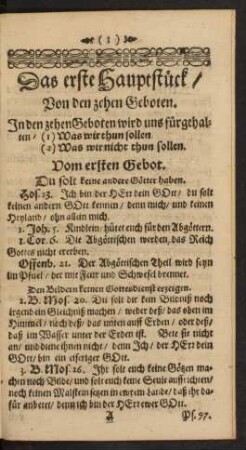 ( 1 )
Das erste Hauptstück /
Von den zehen Geboten.
In den zehen Geboten wird uns fürgehal-
ten / (1) Was wir thun sollen
(2) Was wir nicht thun sollen.
Vom ersten Gebot.
Du solt keine andere Götter haben.
Hos. 13. Ich bin der HErr dein GOtt / du solt
keinen andern GOtt kennen / denn mich / und keinen
Heyland / ohn allein mich.
1. Joh. 5. Kindlein / hütet euch für den Abgöttern.
1. Cor. 6. Die Abgöttischen werden das Reich
Gottes nicht ererben.
Offenb. 21. Der Abgöttischen Theil wird seyn
im Pfuel / der mit Feur und Schwefel brennet.
Den Bildern keinen Gottesdienst erzeigen.
2. B. Mos. 20. Du solt dir kein Bildnuß noch
irgend ein Gleichniß machen / weder deß / das oben im
Himmel / noch deß / das unten auff Erden / oder deß /
das im Wasser unter der Erden ist. Bete sie nicht
an / und diene ihnen nicht / denn Ich / der HErr dein
GOtt / bin ein eiferiger GOtt.
3. B. Mos. 26. Ihr solt euch keine Götzen ma-
chen noch Bilde / und solt euch keine Seule auffrichten /
noch keinen Malstein setzen in eurem Lande / daß ihr da-
für anbetet / denn ich bin der HErr euer GOtt.
A Ps. 97.